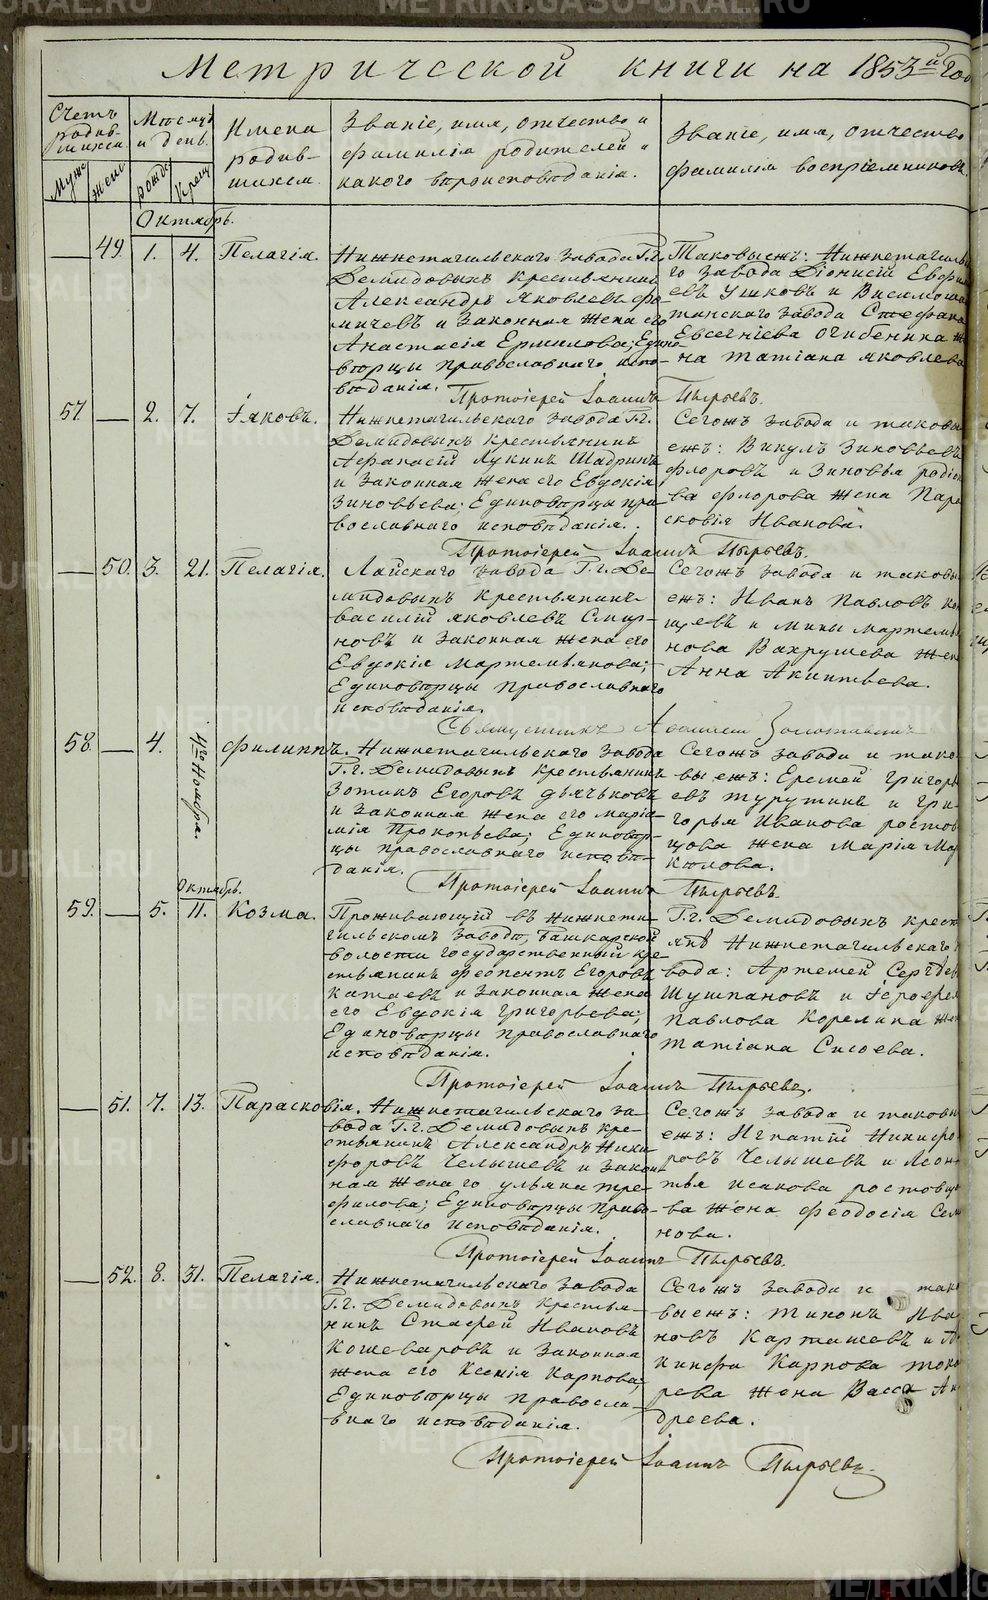 Метрической книги на 1853й Го
Счетъ родившихся
Мѣсяцъ и день.
Имена родившихся.
Званіе, имя, отчество и фамилія родителей и какого вѣроисповѣданія.
Званіе, имя, отчество фамилія воспріемниковъ.
Муже Жене рожде Крещ
Октябрь.
49. 1. 4. Пелагія.
Нижнетагильскаго завода Г.г.
Демидовыхъ крестьянинъ
Александръ Яковлевъ Фо-
мичевъ и законная жена его
Анастасія Ермилова; Едино
вѣрцы православнаго испо-
вѣданія.
Таковыежъ: Нижнетагильска
го завода Діонисій Евфим
евъ Ушковъ и Висимоша
танскаго завода Стефана
Евсегніева Огибенина же
на Татіана Яковлева
Протоіерей Іоаннъ Пырьевъ.
57. 2. 7. Іяковъ.
Нижнетагильскаго завода Г.г.
Демидовыхъ крестьянинъ
Афанасій Лукинъ Шадринъ
и законная жена его Евдокія
Зиновьева; Единовѣрцы пра-
вославнаго исповѣданія.
Сегожъ завода и таковы
ежъ: Викулъ Зиновьевъ
Флоровъ и Зиновья родіо
ва Флорова жена Пара
сковія Иванова.
Протоіерей Іоаннъ Пырьевъ.
50. 3. 21. Пелагія.
Лайскаго завода Г.г. Де-
мидовыхъ крестьянинъ
василій яковлевъ Смир-
новъ и законная жена его
Евдокія Мартемьянова;
Единовѣрцы православнаго
исповѣданія.
Сегожъ завода и таковы
ежъ: Иванъ Павловъ ко
щеевъ и Мины Мартемья
нова Вахрушева жен
Анна Акинтьева.
Священникъ
58. 4. 4го Ноября. Филиппъ.
Нижнетагильскаго завода
Г.г. Демидовыхъ крестьянинъ
Зотикъ Егоровъ Дьячьковъ
и законная жена его Маріа-
мія Прокопьева; Единовѣр-
цы православнаго исповѣ-
данія.
Сегожъ завода и тако
выежъ: Еремей Григорь
евъ турутинъ и Гри-
горья Иванова ростов
цова жена Марія Мар
килова.
Протоіерей Іоаннъ Пырьевъ.
Октябрь.
59. 5. 11. Козма.
Проживающій въ Нижнета-
гильскомъ заводѣ, Башкарской
волости государственный кре-
стьянинъ Феопентъ Егоровъ
Катаевъ и законная жена
его Евдокія Григорьева;
Единовѣрцы православнаго
исповѣданія.
Г.г. Демидовыхъ крест
янѣ Нижнетагильскаго з
вода: Артемей Сергѣев
Шушпановъ и Іерофея
Павлова Корелина жен
Татіана Сысоева.
Протоіерей Іоаннъ Пырьевъ.
51. 7. 13. Парасковія.
Нижнетагильскаго за-
вода Г.г. Демидовыхъ кре-
стьянинъ Александръ Ники
форовъ Челышевъ и закон
ная жена го ульяна тре-
филова; Единовѣрцы право-
славнаго исповѣданія.
Сегожъ завода и таковы
ежъ: Игнатій Никифо
ровъ Челышевъ и Леон-
тья исакова ростовцо
ва жена Феодосія Сем
нова.
Протоіерей Іоаннъ Пырьевъ.
52. 8. 31. Пелагія.
Нижнетагильскаго завода
Г.г. Демидовыхъ крестья-
нинъ Стафей Ивановъ
Кошеваровъ и законная
жена его Ксенія Карпова;
Единовѣрцы правосла-
внаго исповѣданія.
Сегожъ завода и тако
выежъ: тихонъ Ива
новъ Карташевъ и А
кинфа Карпова токо
рева жена Васса Ан
дреева.
Протоіерей Іоаннъ Пырьевъ.
METRIKI.GASO-URAL.RU